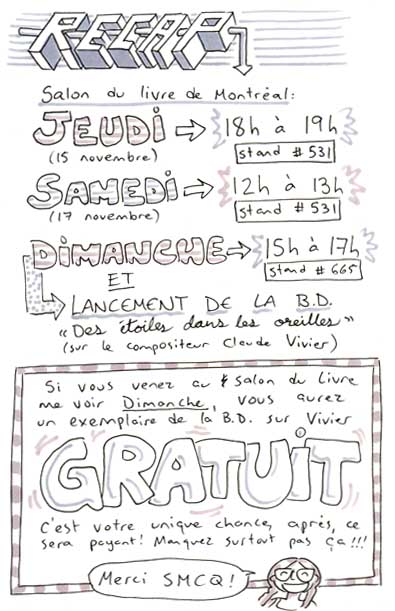 RECAP
Salon du livre de Montréal:
JEUDI → 18h à 19h
(15 novembre) stand #531
SAMEDI → 12h à 13h
(17 novembre) stand #531
DIMANCHE → 15h à 17h
stand #665
ET
LANCEMENT DE LA B.D.
« Des étoiles dans les oreilles »
(sur le compositeur Claude Vivier)
Si vous venez au Salon du Livre
me voir Dimanche, vous aurez
un exemplaire de la B.D. sur Vivier
GRATUIT
C'est votre unique chance, après, ce
sera payant! Manquez surtout pas ça!!!
Merci SMCQ!